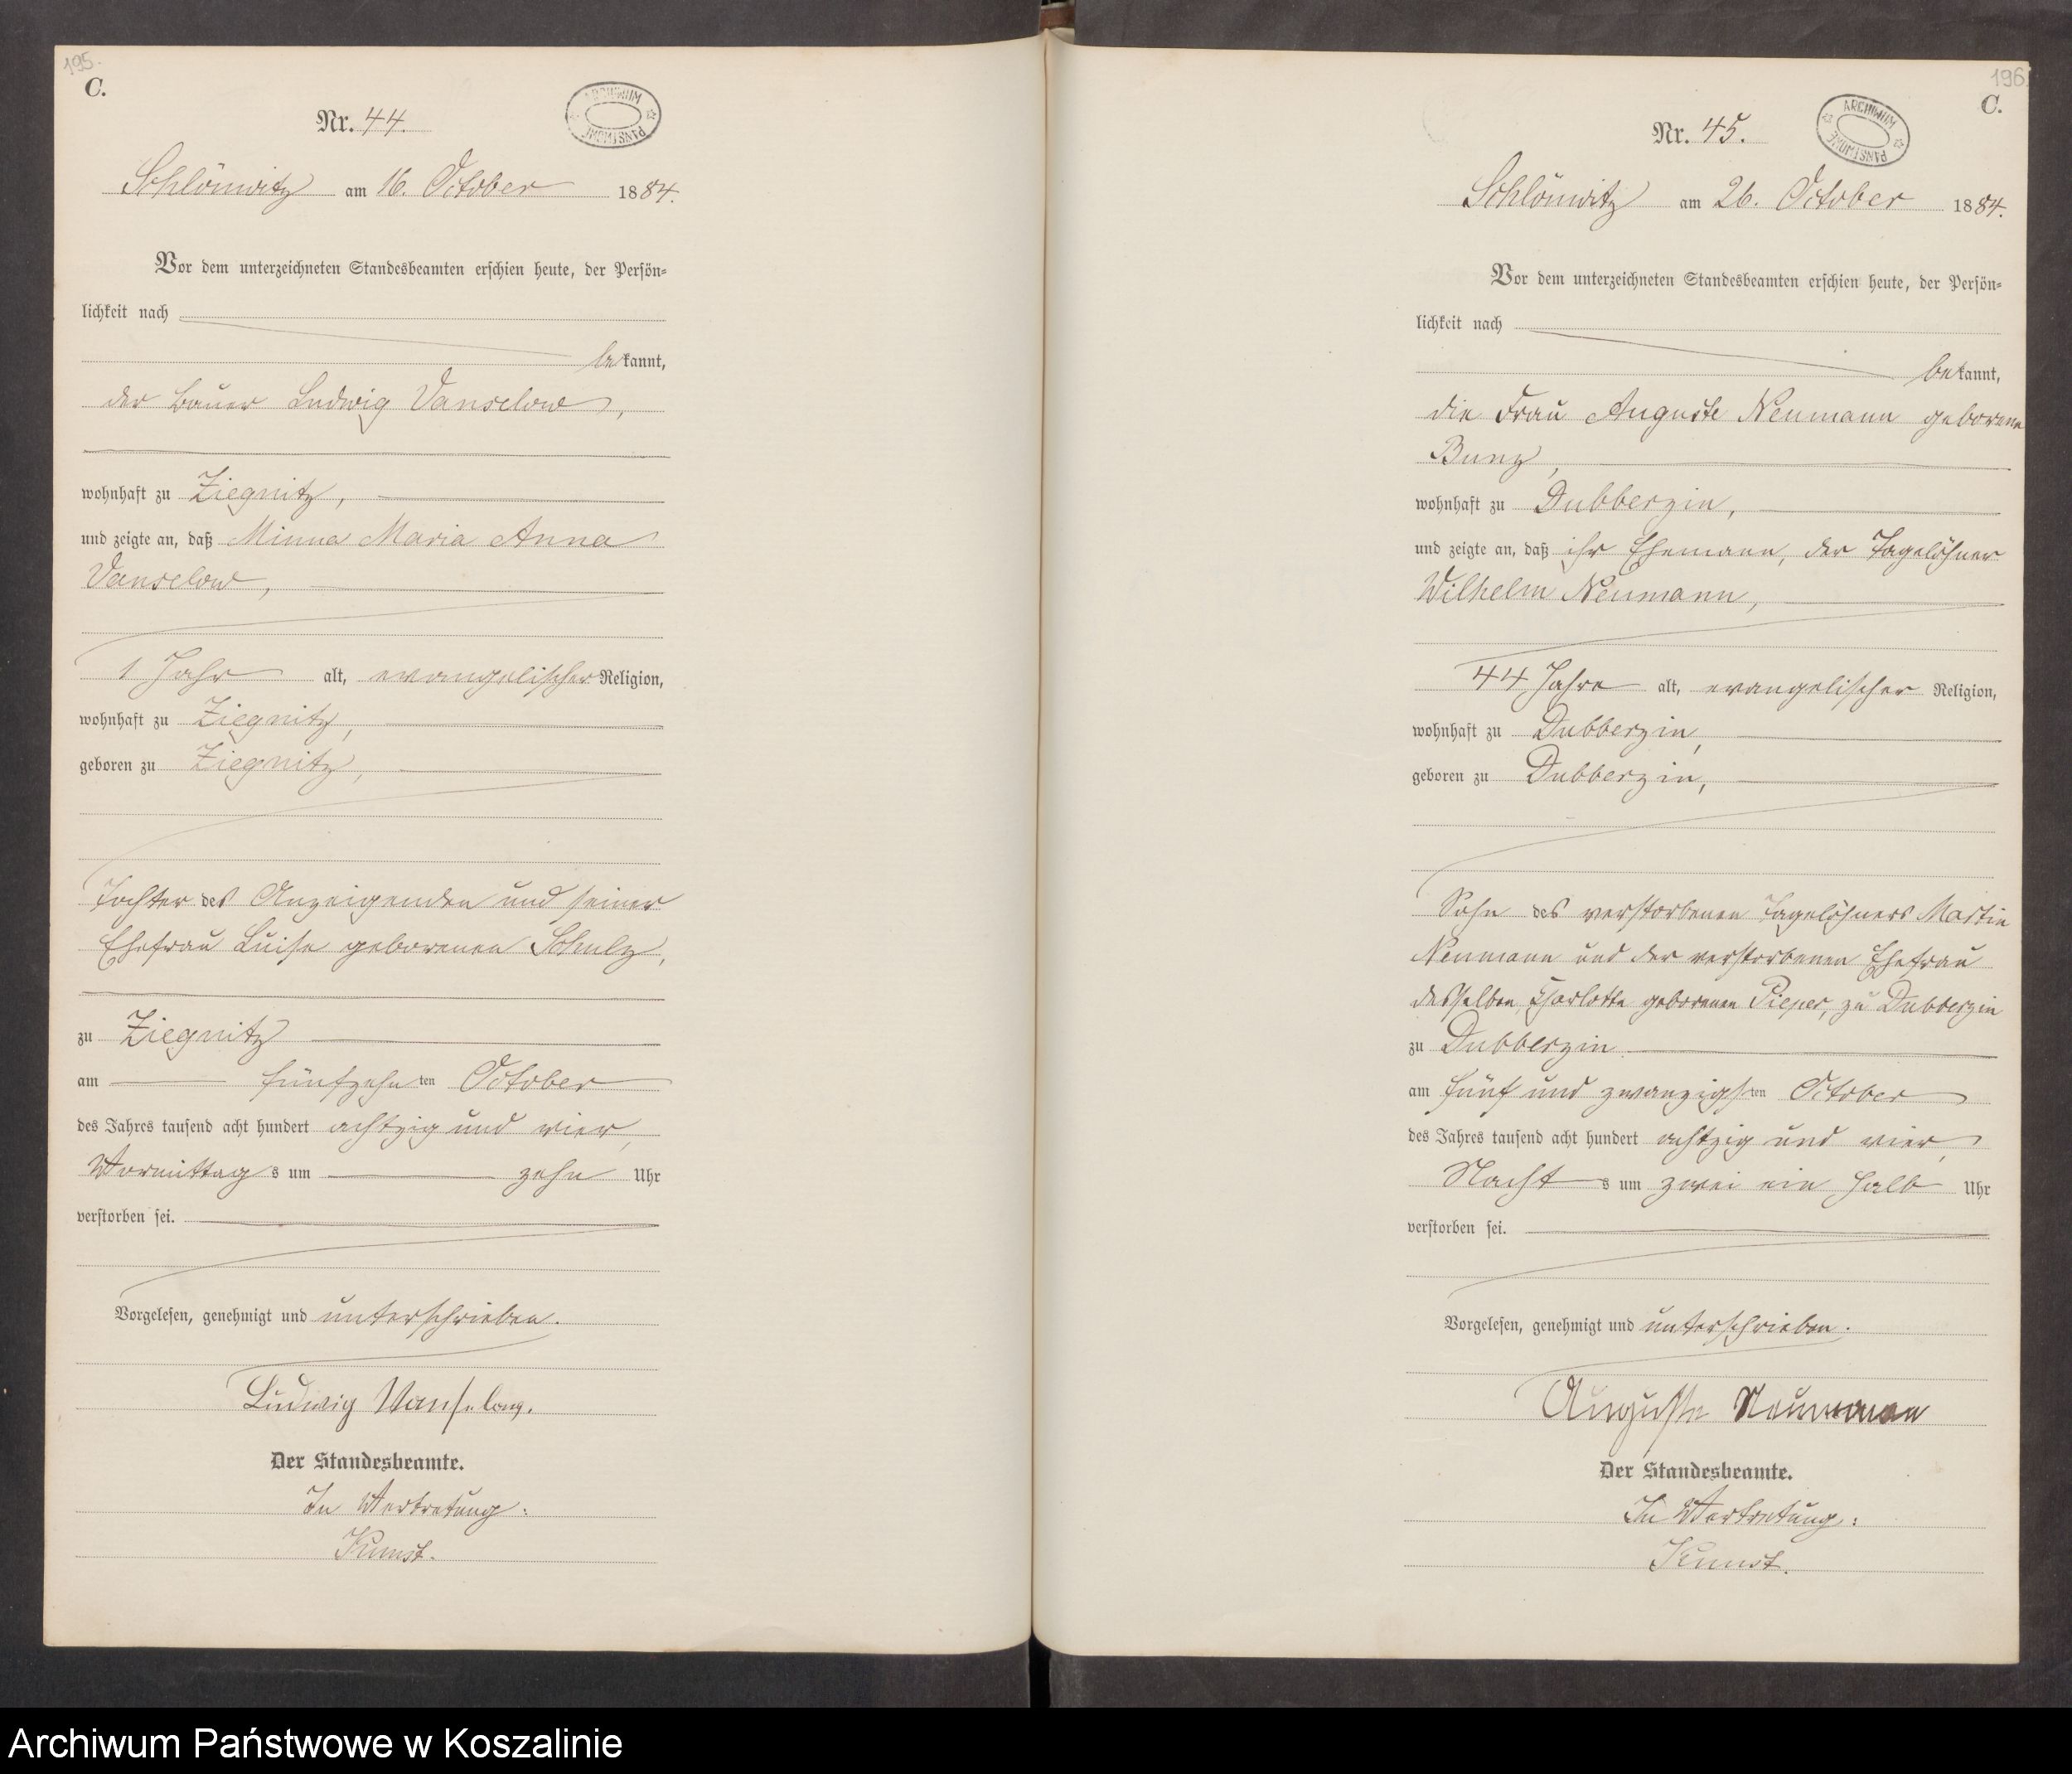 195.
C.
ARCHIWUM PAŃSTWOWE
Nr. 44.
Schlönwitz am 16. October 1884.
Vor dem unterzeichneten Standesbeamten erschien heute, der Persön-
lichkeit nach
bekannt,
der Bauer Ludwig Vanselow,
wohnhaft zu Ziegnitz,
und zeigte an, daß Minna Maria Anna
Vanselow,
1 Jahr alt, evangelischer Religion,
wohnhaft zu Ziegnitz,
geboren zu Ziegnitz,
Tochter des Anzeigenden und seiner
Ehefrau Luise geborenen Schulz,
zu Ziegnitz
am fünfzehnten October
des Jahres tausend acht hundert achtzig und vier,
Vormittags um zehn Uhr
verstorben sei.
Vorgelesen, genehmigt und unterschrieben.
Ludwig Vanselow.
Der Standesbeamte.
In Vertretung:
Kunst.
196
C.
ARCHIWUM PAŃSTWOWE
Nr. 45.
Schlönwitz am 26. October 1884.
Vor dem unterzeichneten Standesbeamten erschien heute, der Persön-
lichkeit nach
bekannt,
die Frau Auguste Neumann geborene
Bunz,
wohnhaft zu Dubberzin,
und zeigte an, daß ihr Ehemann, der Tagelöhner
Wilhelm Neumann,
44 Jahre alt, evangelischer Religion,
wohnhaft zu Dubberzin,
geboren zu Dubberzin,
Sohn des verstorbenen Tagelöhners Martin
Neumann und der verstorbenen Ehefrau
desselben, Charlotte geborenen Pieper, zu Dubberzin
zu Dubberzin
am fünf und zwanzigsten October
des Jahres tausend acht hundert achtzig und vier,
Nachts um zwei ein halb Uhr
verstorben sei.
Vorgelesen, genehmigt und unterschrieben.
Auguste Neumann
Der Standesbeamte.
In Vertretung:
Kunst.
Archiwum Państwowe w Koszalinie